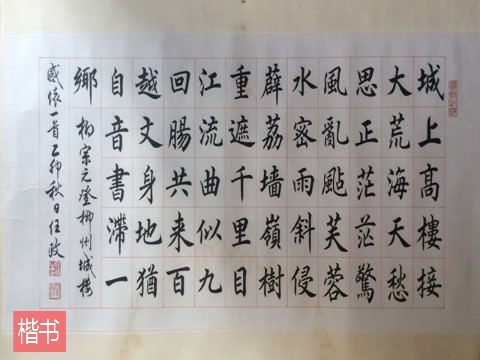 城上高樓接
大荒海天愁
思正茫茫驚
風亂颭芙蓉
水密雨斜侵
薜荔墙嶺樹
重遮千里目
江流曲似九
回腸共来百
越文身地猶
自音書滯一
鄉 柳宗元登柳州城楼
感懷一首乙卯秋日任政
楷书